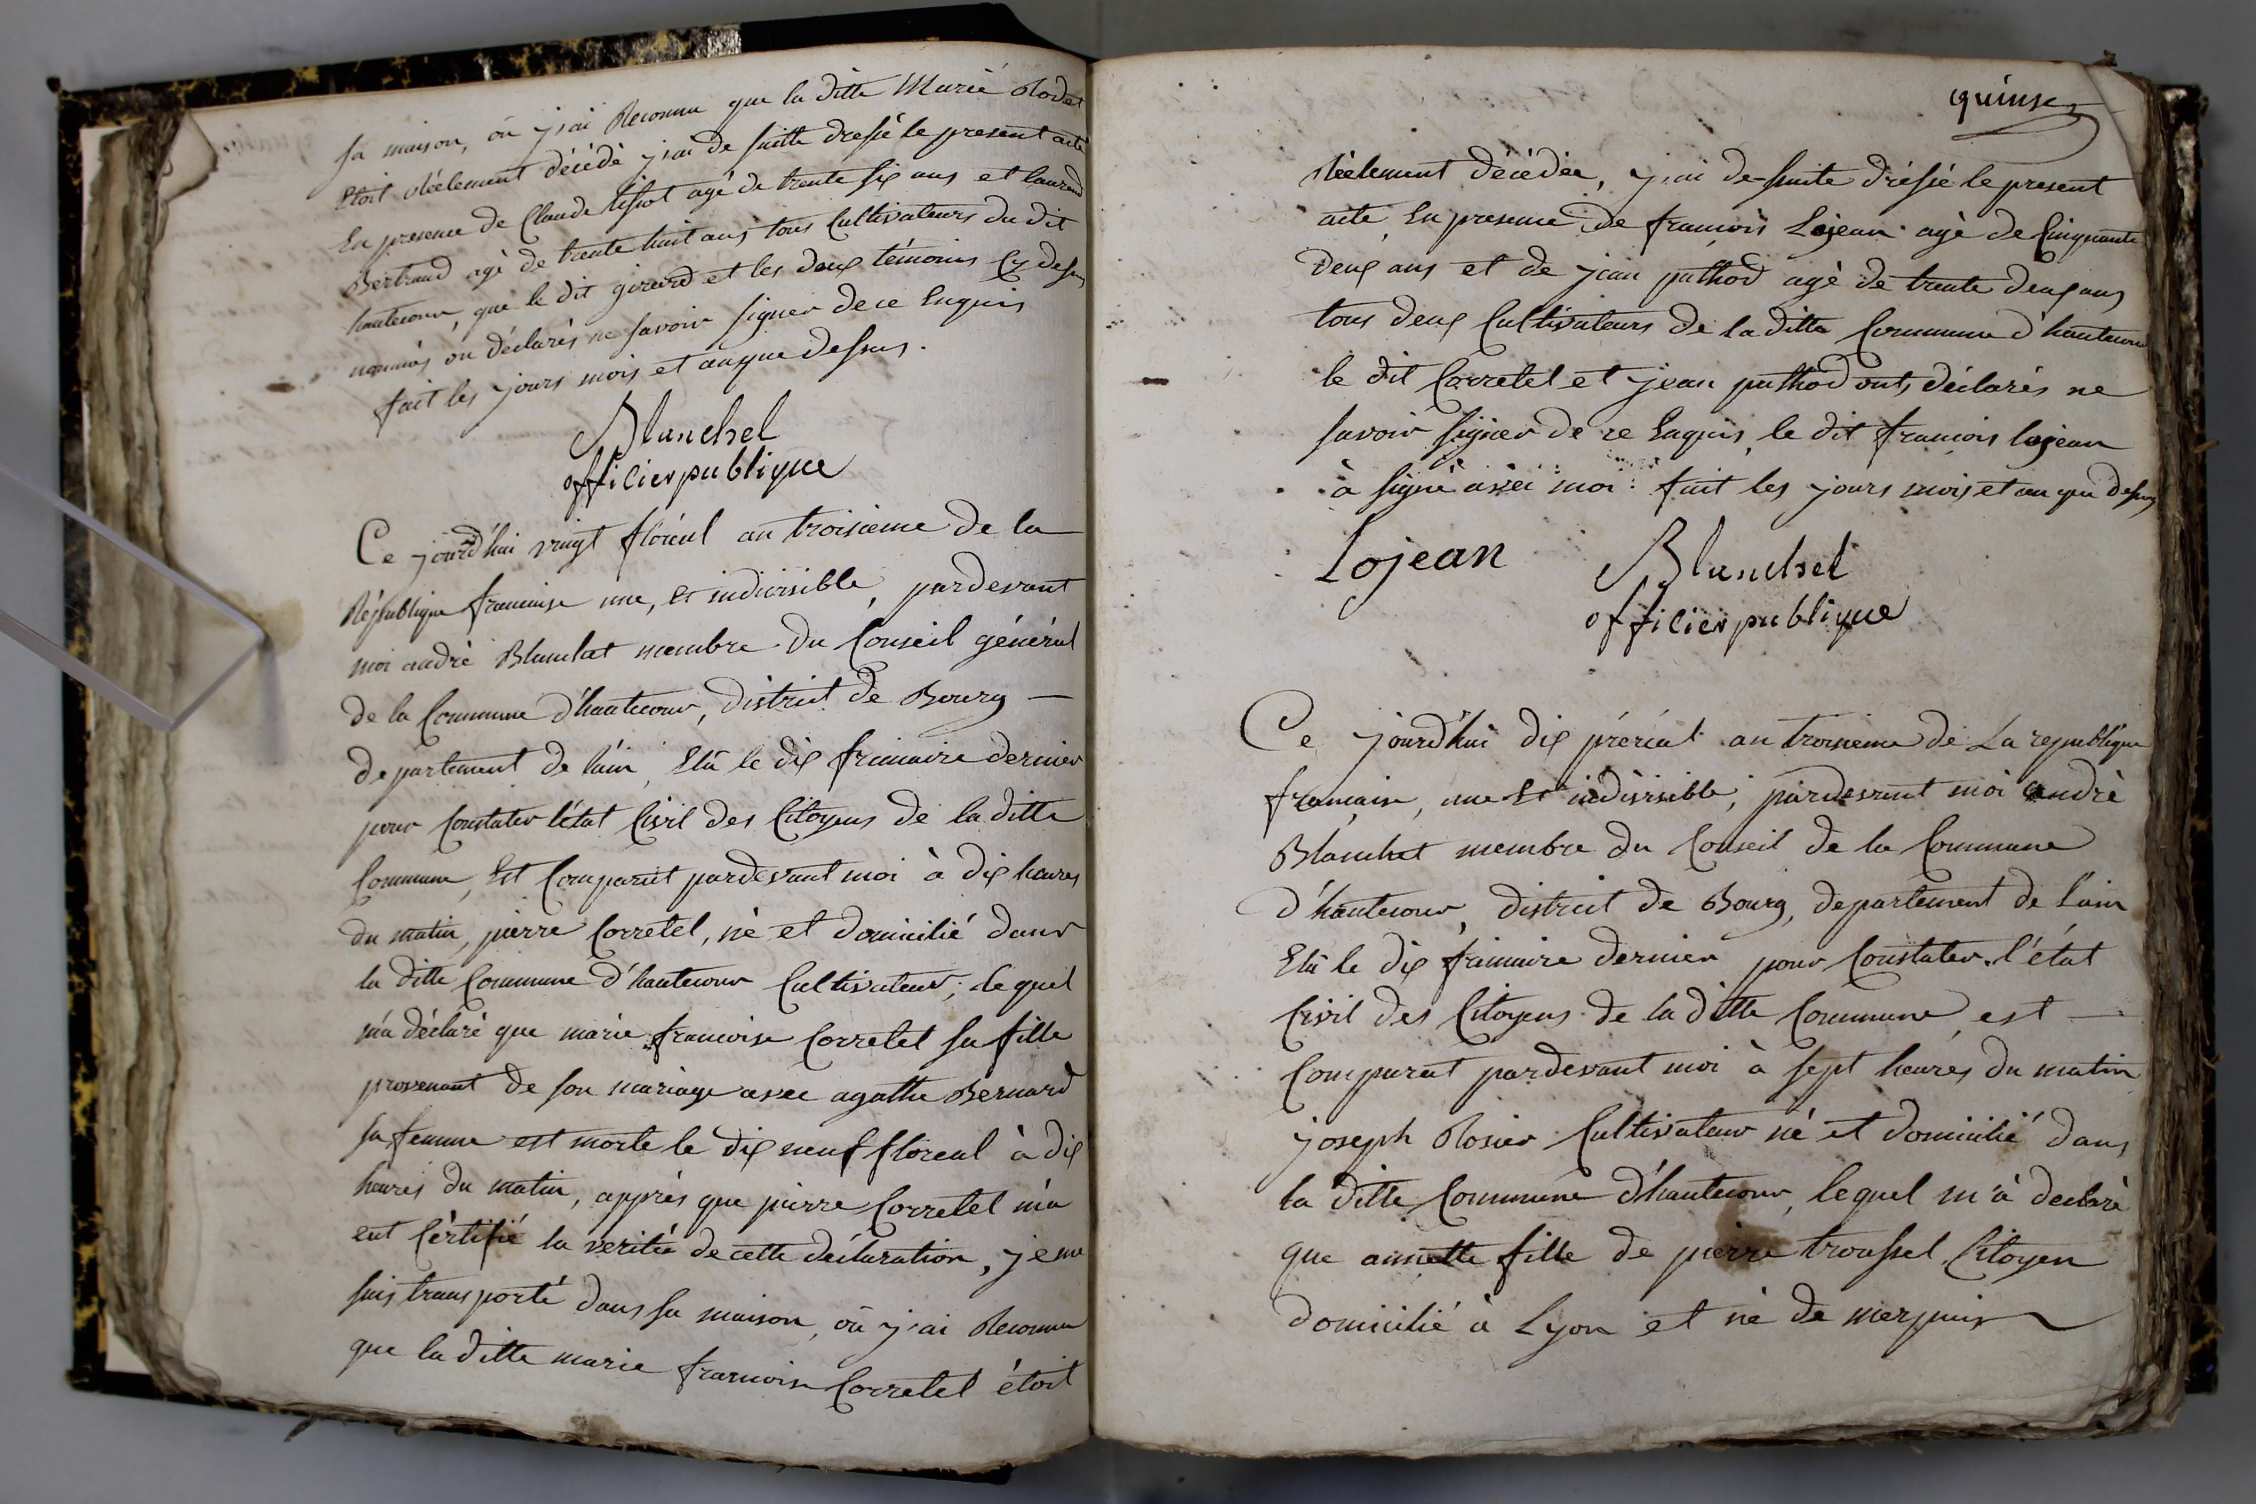 sa maison, ou j'ai Reconnu que la ditte Marie Rodet
Etoit Réelement décédé j'ai de suitte dressé le present acte
En presence de Claude tissot agé de trente six ans et laurend
Bertrand agé de trente huit ans tous Cultivateurs du dit
hautecour, que le dit girard et les deux témoins Cy dessus
nommés on déclarés ne savoir signer de ce Enquis
fait les jours mois et an que dessus.
Blanchet
officier publique
Ce jourd'hui vingt floréal an troisieme de la
République francaise une, et indivisible, pardevant
moi andré Blanchet membre du Conseil général
de la Commune d'hautecour, district de Bourg
departement de l'ain, Elû le dix frimaire dernier
pour Constater l'état Civil des Citoyens de la ditte
Commune, Est Comparut pardevant moi à dix heures
du matin, pierre Corretel, né et domicilié dans
la ditte Commune d'hautecour Cultivateur; lequel
m'a déclaré que marie francoise Corretel sa fille
provenant de son mariage avec agathe Bernard
sa femme est morte le dix neuf floreal à dix
heures du matin, apprés que pierre Corretel m'a
eut Cèrtifié la verité de cette déclaration, je me
suis transporté dans sa maison, où j'ai Reconnu
que la ditte marie francoise Corretel étoit
quinse
Réelement décédée, j'ai de-suite dréssé le present
acte, En presence de francois Lojean agé de Cinquante
deux ans et de jean puthod agé de trente deux ans
tous deux Cultivateurs de la ditte Commune d'hautecour
le dit Corretel et jean puthod onts déclarés ne
savoir signer de ce Enquis, le dit francois lojean
à signé avéc moi: fait les jours mois et an que dessus
Lojean Blanchet
officier publique
Ce jourd'hui dix préréal an troisieme de La republique
francaise, une Et indivisible, pardevant moi andré
Blanchet membre du Conseil de la Commune
d'hautecour, district de Bourg, departement de l'ain
Elû le dix frimaire dernier pour Constater l'état
Civil des Citoyens de la ditte Commune est
Comparut pardevant moi à sept heures du matin
joseph Rosier Cultivateur né et domicilié dans
la ditte Commune d'hautecour, lequel m'à declaré
que annette fille de pierre troussel Citoyen
domicilié à Lyon et né de merpuis